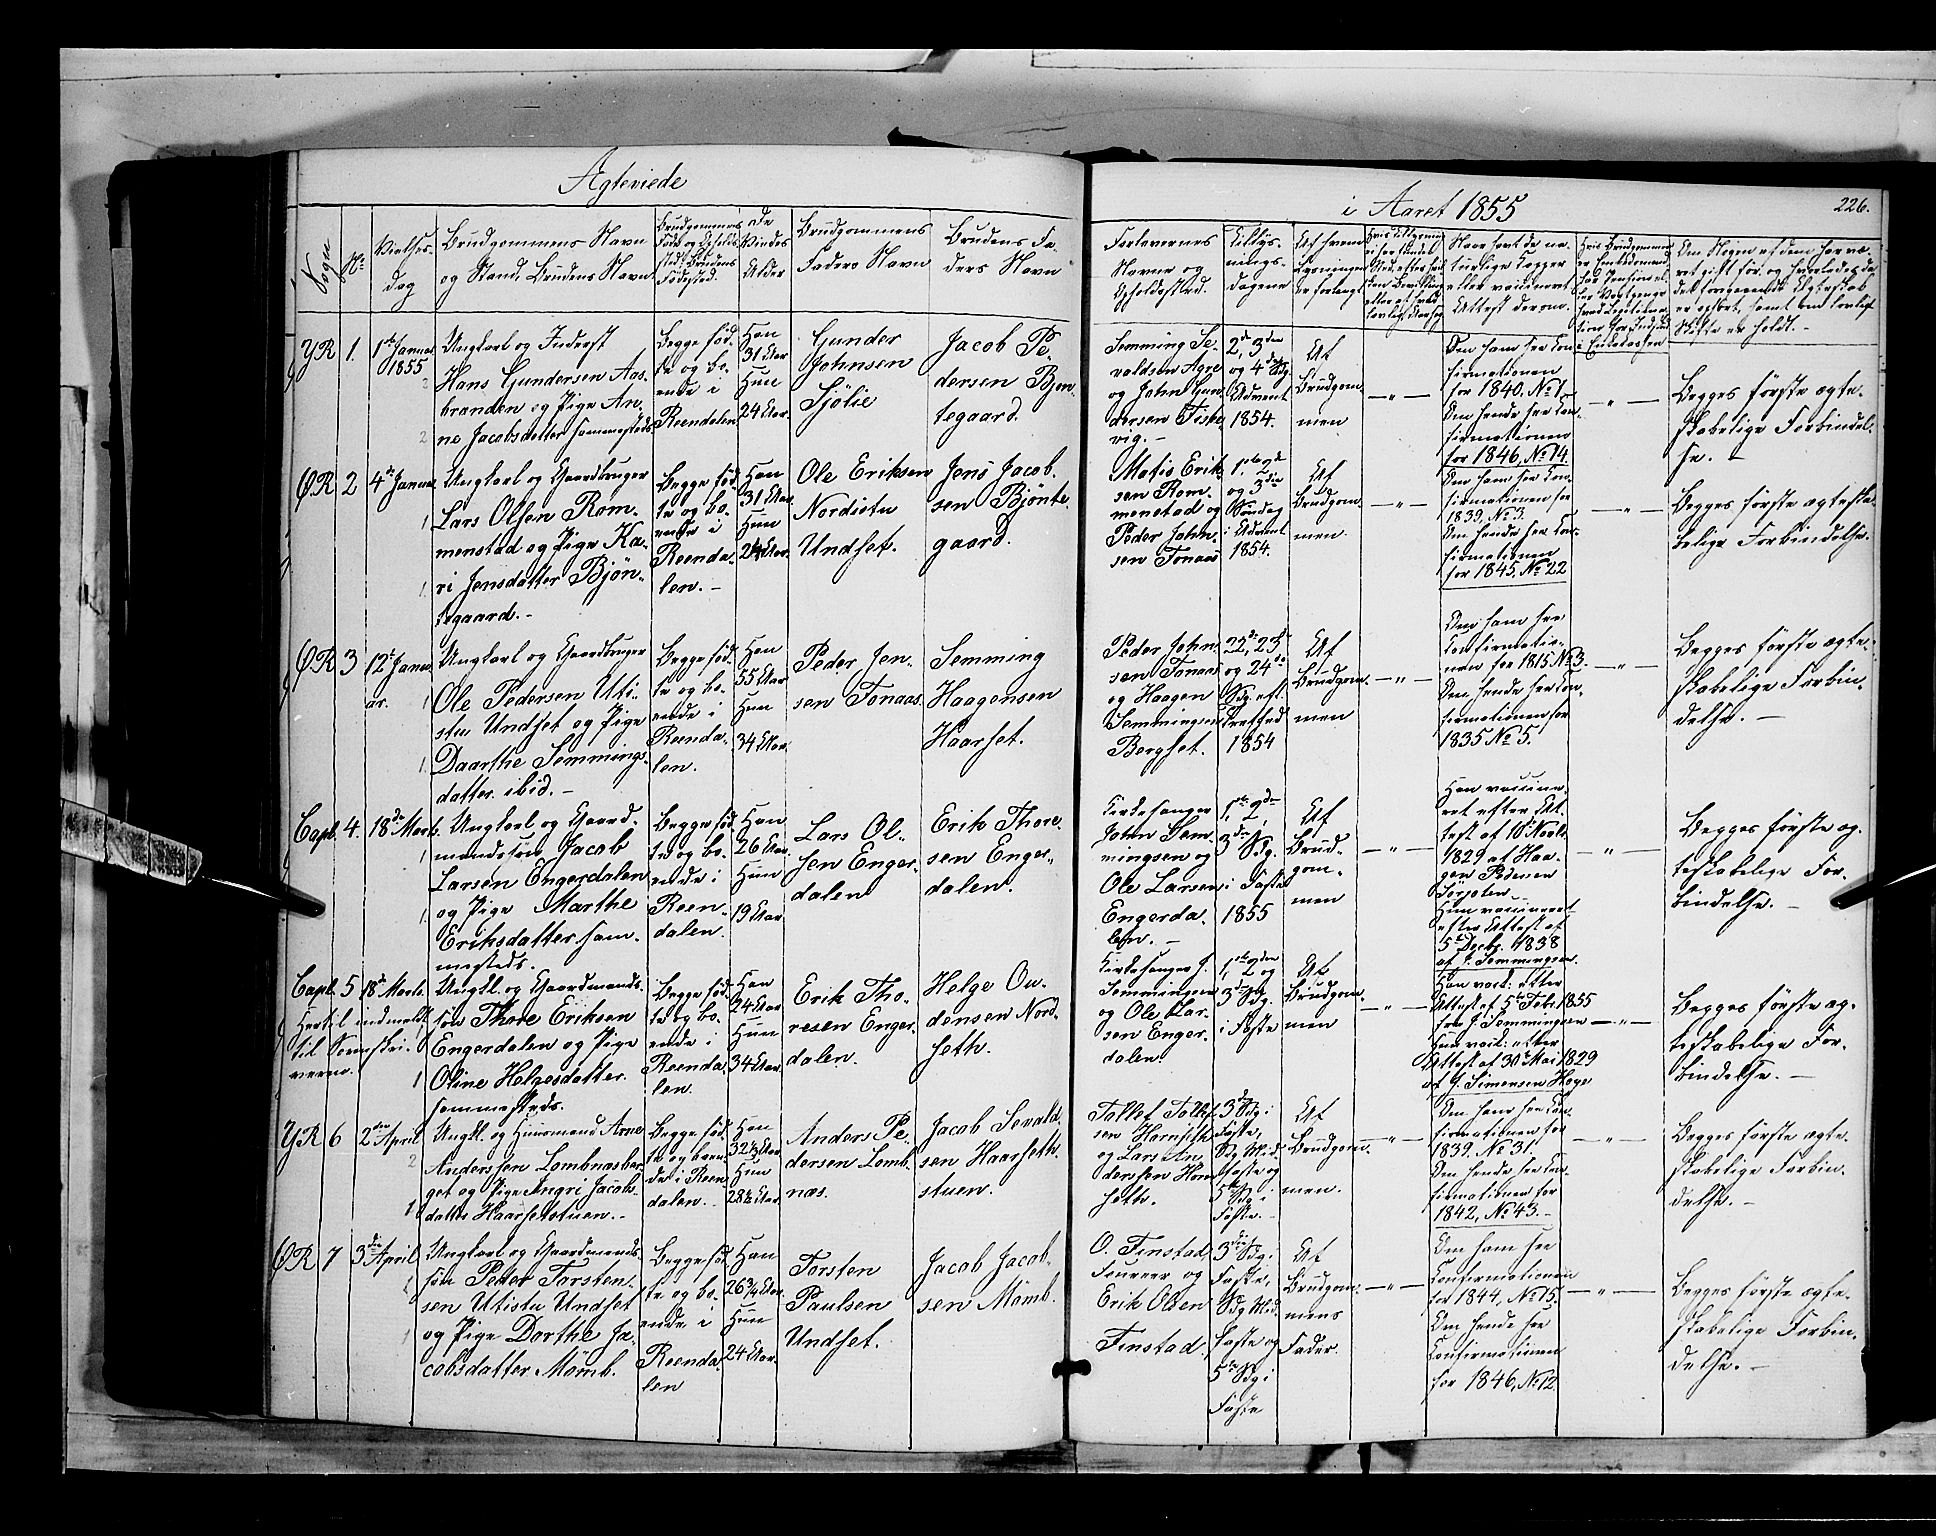 Ægteviede
i Aaret 1855
226.
Sogn
No
Vielses-
dag
Brudgommens Navn
og Stand, Brudens Navn
Brudgommens
Føde og Opholds
sted. Brudens
Fødested.
De
Viedes
Alder
Brudgommens
Faders Navn
Brudens Fa-
ders Navn
Forlovernes
Navne og
Opholdssted.
Tillys-
nings-
dagene
Af hvem
Lysningen
er forlangt
Naar havt de na-
turlige Kopper
eller vaccineret
Attest derom.
YR 1. 1ste Januar
1855
Ungkarl og Inderst
Hans Gundersen Aas-
branden og Pige An-
ne Jacobsdatter sammesteds
Begge fød-
te og bo-
ende i
Reendalen.
Han
31 Aar
Hun
24 Aar.
Gunder
Johnsen
Sjölie
Jacob Pe-
dersen Bjön-
tegaard.
Semming Se-
valdsen Agre
og John Gun-
dersen Fiske-
vig. -
2den, 3den
og 4de Sdg.
Advent
1854.
Af
Brudgom-
men
— " —
Om ham see Con-
firmationen
for 1840. No 1
Om hende see Con-
firmationen
for 1846, No 14.
— " —
Begges første ægte-
skabelige Forbindel-
se. -
ØR 2 4de Januar
Ungkarl og Gaardbruger
Lars Olsen Rom-
menstad og Pige Ka-
ri Jensdatter Bjön-
tegaard. -
Begge fød-
te og bo-
ende i
Reenda-
len. -
Han
31 Aar.
Hun
24 Aar.
Ole Eriksen
Nordistu
Undset.
Jens Jacob-
sen Bjönte-
gaard.
Matis Erik-
sen Rom-
menstad og
Peder John-
sen Tonaas
1ste, 2den
og 3die
Søndag
i Advent
1854.
Af
Brudgom-
men.
— " —
Om ham see Con-
firmationen for
1839, No 3.
Om hende see Con-
firmationen
for 1845. No 22
— " —
Begges første ægteska-
belige Forbindelse. -
ØR 3 12te Janu-
ar.
Ungkarl og Gaardbruger
Ole Pedersen Uti-
stu Undset og Pige
Daarthe Semmings-
datter ibid. -
Begge fød-
te og bo-
ende i
Reenda-
len.
Han
55 Aar
Hun
34 Aar.
Peder Jen-
sen Tonaas.
Semming
Haagensen
Haarset.
Peder John-
sen Tonaas
og Haagen
Semmingsen
Bergset.
22de, 23de
og 24de
Sdg. eft.
Trefred
1854
Af
Brudgom-
men
— " —
Om ham see
Confirmatio-
nen for 1815 No 3.
Om hende see Con-
firmationen for
1835 No 5.
— " —
Begges første ægte-
skabelige Forbin-
delse. -
Capl. 4. 18de Marts.
Ungkarl og Gaard-
mandssøn Jacob
Larsen Engerdalen
og Pige Marthe
Eriksdatter sam-
mesteds.
Begge fød-
te og bo-
ende i
Reen-
dalen.
Han
26 Aar.
Hun
19 Aar
Lars Ol-
sen Enger-
dalen
Erik Thore-
sen Enger-
dalen.
Kirkesanger
John Sem-
mingsen og
Ole Larsen
Engerda-
len. -
1ste, 2den,
3die Sdg.
i Faste
1855
Af
Brud-
gom-
men
— " —
Han vaccine-
ret efter At-
test af 18 Novb.
1829 af Haa-
gen Pedersen
Hun vaccineret
efter Attest af
5te Decbr. 1838
af J. Semmingsen.
— " —
Begges første æg-
teskabelige For-
bindelse. -
Capl. 5 18de Marts.
Ungkl. og Gaardmands-
søn Thore Eriksen
Engerdalen og Pige
Oline Helgesdatter
sammesteds.
Begge fød-
te og bo-
ende i
Reenda-
len.
Han
24 Aar
Hun
34 Aar.
Erik Tho-
resen Enger-
dalen.
Helge Ou-
densen Nord-
seth.
Kirkesanger J.
Semmingsen
og Ole Lar-
sen Enger-
dalen.
1ste, 2den og
3die Sdg.
i Faste
Af
Brudgom-
men
— " —
Han vacc: efter
Attest af 5te Febr. 1855
fra J. Semmingsen
Hun vacc: efter
Attest af 30te Mai 1829
af J. Simensen Hage
— " —
Begges første æg-
teskabelige For-
bindelse. -
YR 6 2den April
Ungkl. og Huusmand Arne
Anderssen Lombnæsber-
get og Pige Ingri Jacobs-
datter Haarsetstuen. -
Begge fød-
te og boen-
de i Reen-
dalen.
Han
32½ Aar
Hun
28½ Aar.
Anders Pe-
dersen Lomb-
næs.
Jacob Sevald-
sen Haarseth-
stuen.
Tollef Tollef-
sen Hornseth
og Lars An-
derssen Horn-
seth.
3die Sdg. i
Faste,
Sdg. Mid-
faste og
5te Sdg. i
Faste. -
Af
Brudgom-
men.
— " —
Om ham see Con-
firmationen for
1839. No 31.
Om hende see Con-
firmationen for
1842, No 43. -
— " —
Begges første ægte-
skabelige Forbin-
delse. -
ØR 7 3die April
Ungkarl og Gaardmands-
søn Peder Torsten-
sen Utistu Undset
og Pige Dorthe Ja-
cobsdatter Mömb.
Begge fød-
te og bo-
ende i
Reenda-
len
Han
26¾ Aar.
Hun
24 Aar.
Torsten
Paulsen
Undset.
Jacob Jacob-
sen Mömb.
O. Finstad,
Foureer og
Erik Olsen
Finstad.
3die Sdg. i
Faste,
Sdg. Mid-
faste og
5te Sdg. i
Faste
Af
Brudgom-
mens
Fader.
— " —
Om ham see
Confirmationen
for 1844, No 15.
Om hende see
Confirmationen
for 1846, No 12.
— " —
Begges første ægte-
skabelige Forbin-
delse. -